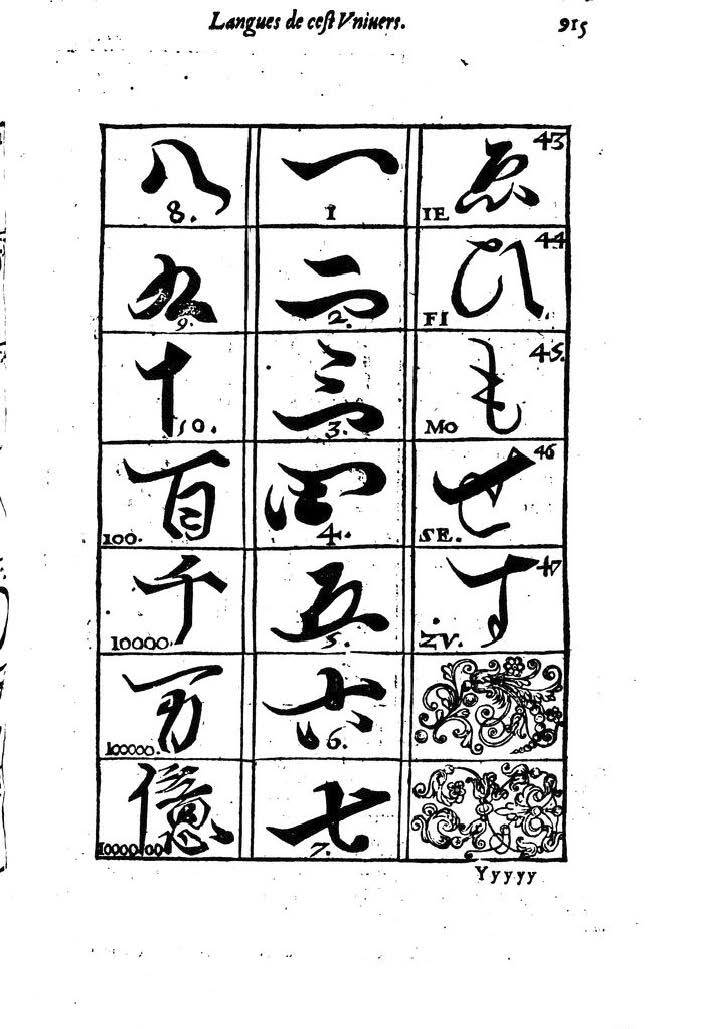 Langues de cest Vniuers. 915
ゑ 43
IE
ひ 44
FI
も 45.
MO
せ 46
SE.
す 47
ZV.
一
1
二
2.
三
3.
四
4.
五
5.
六
6.
七
7.
八
8.
九
9.
十
10.
百
100.
千
10000
万
100000.
億
Yyyyy